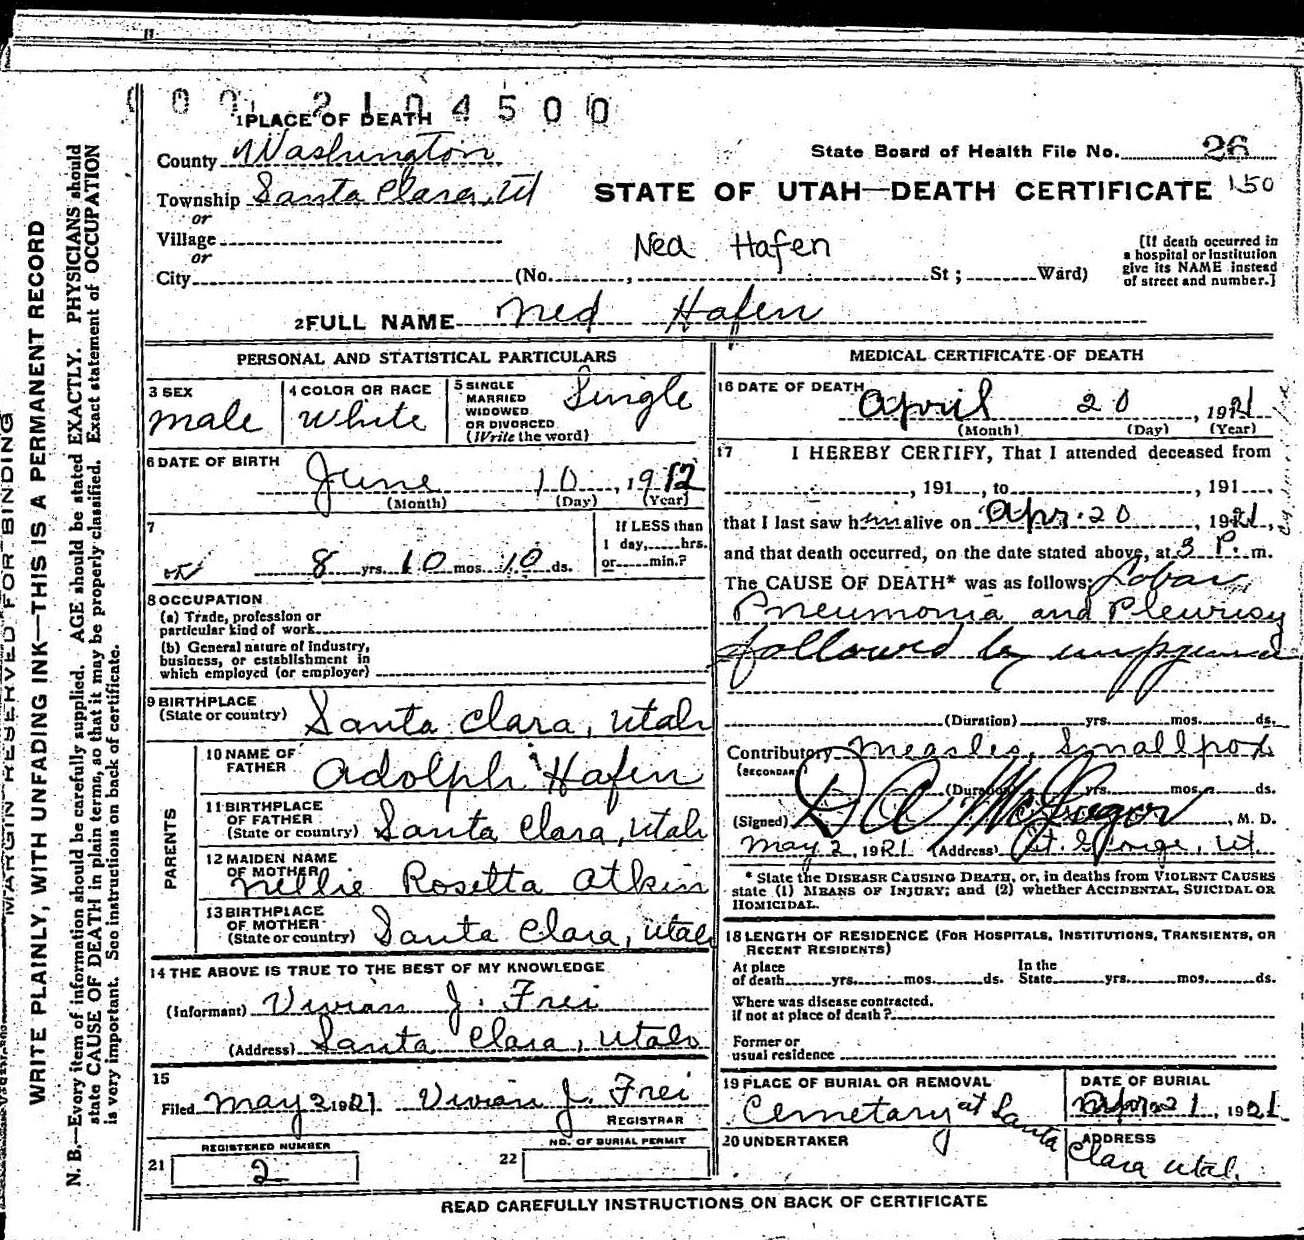 00 2104500
1 PLACE OF DEATH
County Washington
State Board of Health File No. 26
Township Santa Clara, Ut
STATE OF UTAH—DEATH CERTIFICATE 150
or
Village
Ned Hafen
or
City (No. , St ; Ward)
[If death occurred in
a hospital or institution
give its NAME instead
of street and number.]
2 FULL NAME Ned Hafen
PERSONAL AND STATISTICAL PARTICULARS
3 SEX
male
4 COLOR OR RACE
White
5 SINGLE
MARRIED
WIDOWED
OR DIVORCED
(Write the word)
Single
6 DATE OF BIRTH
June 10, 1912
(Month) (Day) (Year)
7
8 yrs. 10 mos. 10 ds.
If LESS than
1 day, hrs.
or min.?
8 OCCUPATION
(a) Trade, profession or
particular kind of work
(b) General nature of Industry,
business, or establishment in
which employed (or employer)
9 BIRTHPLACE
(State or country) Santa Clara, Utah
PARENTS
10 NAME OF
FATHER Adolph Hafen
11 BIRTHPLACE
OF FATHER
(State or country) Santa Clara, Utah
12 MAIDEN NAME
OF MOTHER
Nellie Rosetta Atkin
13 BIRTHPLACE
OF MOTHER
(State or country) Santa Clara, Utah
14 THE ABOVE IS TRUE TO THE BEST OF MY KNOWLEDGE
(Informant) Vivian J. Frei
(Address) Santa Clara, Utah
15
Filed May 2 1921 Vivian J. Frei
REGISTRAR
REGISTERED NUMBER
21 2
NO. OF BURIAL PERMIT
22
MEDICAL CERTIFICATE OF DEATH
16 DATE OF DEATH
April 20, 1921
(Month) (Day) (Year)
17 I HEREBY CERTIFY, That I attended deceased from
, 191 , to , 191 ,
that I last saw him alive on Apr. 20, 1921,
and that death occurred, on the date stated above, at 3 P. m.
The CAUSE OF DEATH* was as follows: Lobar
Pneumonia and Pleurisy
followed by
(Duration) yrs. mos. ds.
Contributory Measles, Smallpox
(SECONDARY)
(Duration) yrs. mos. ds.
(Signed) D A McGregor, M. D.
May 2, 1921 (Address) St. George, Ut.
* State the DISEASE CAUSING DEATH, or, in deaths from VIOLENT CAUSES
state (1) MEANS OF INJURY; and (2) whether ACCIDENTAL, SUICIDAL OR
HOMICIDAL.
18 LENGTH OF RESIDENCE (FOR HOSPITALS, INSTITUTIONS, TRANSIENTS, OR
RECENT RESIDENTS)
At place
of death yrs. mos. ds.
In the
State yrs. mos. ds.
Where was disease contracted.
if not at place of death?
Former or
usual residence
19 PLACE OF BURIAL OR REMOVAL
Cemetary at Santa
DATE OF BURIAL
Apr. 21, 1921
20 UNDERTAKER
ADDRESS
Clara Utah.
READ CAREFULLY INSTRUCTIONS ON BACK OF CERTIFICATE
MARGIN RESERVED FOR BINDING
WRITE PLAINLY, WITH UNFADING INK—THIS IS A PERMANENT RECORD
N. B.—Every item of information should be carefully supplied. AGE should be stated EXACTLY. PHYSICIANS should
state CAUSE OF DEATH in plain terms, so that it may be properly classified. Exact statement of OCCUPATION
is very important. See instructions on back of certificate.